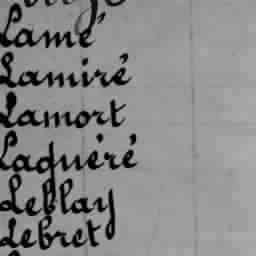 Lamé
Lamiré
Lamort
Laquéré
Leblay
Lebret